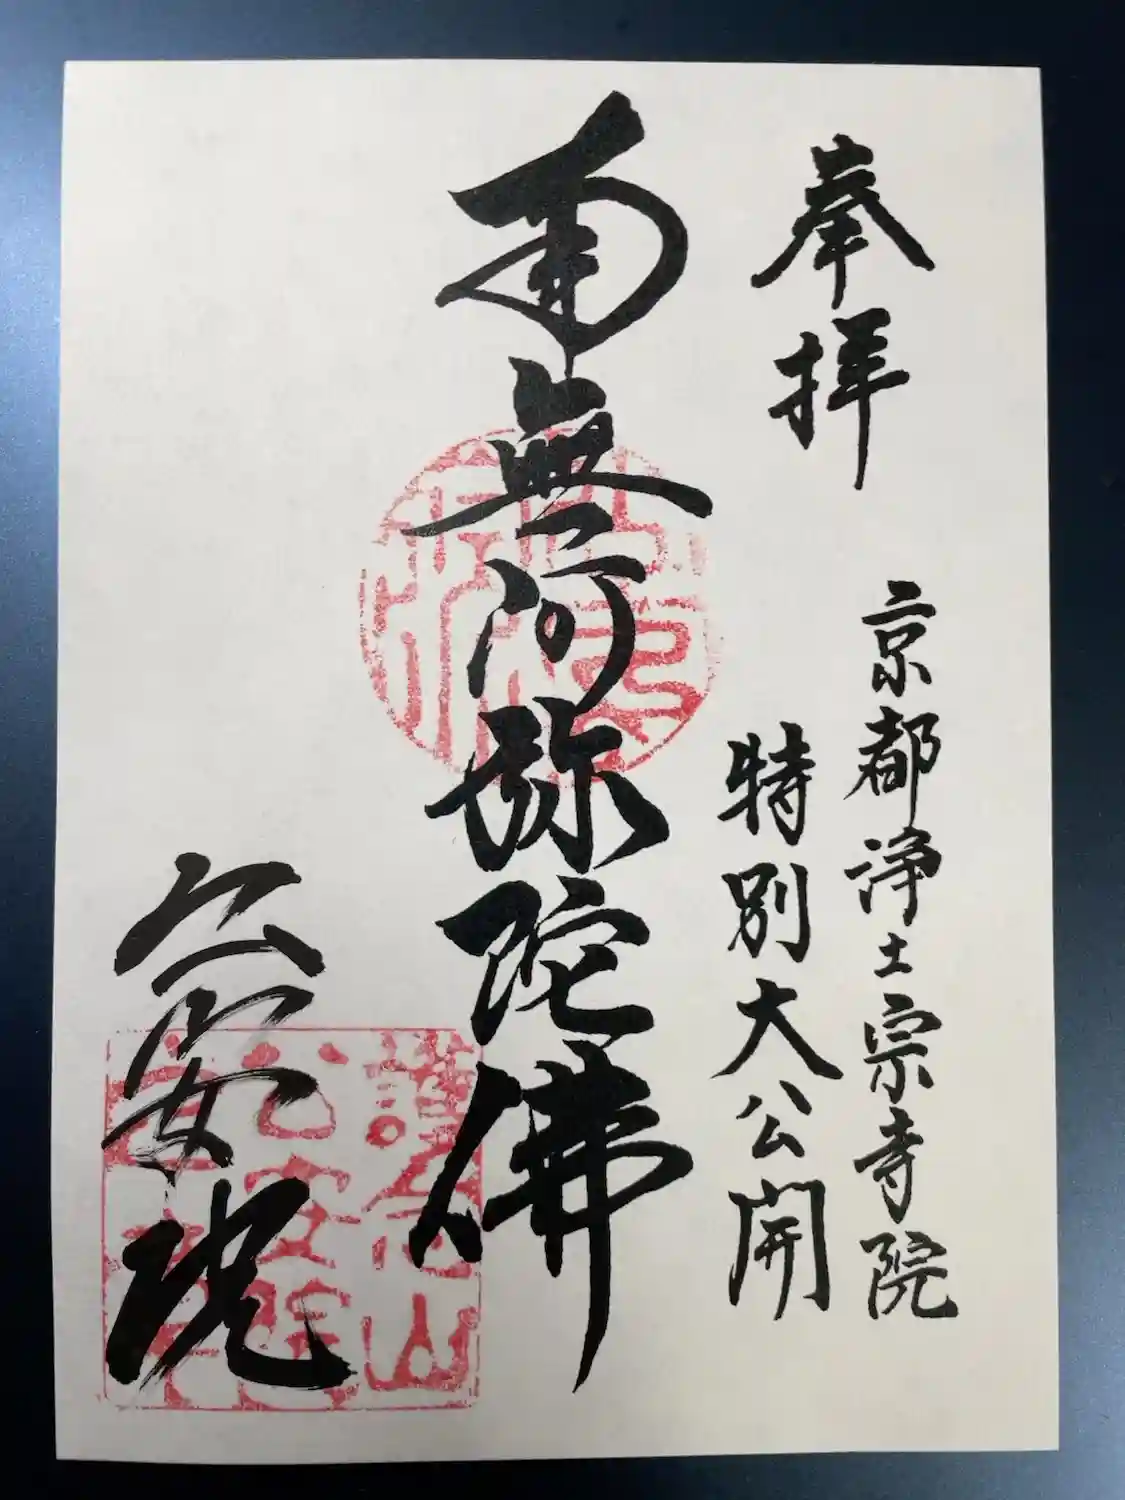 奉拝
京都浄土宗寺院
特別大公開
南無阿弥陀佛
公安院